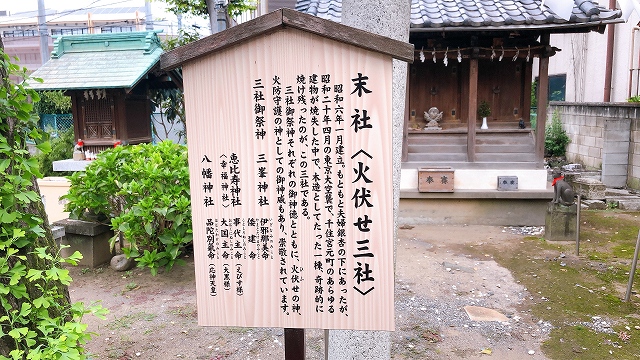 末社〈火伏せ三社〉
昭和六年一月建立。もともと夫婦銀杏の下にあったが、
昭和二十年四月の東京大空襲で、千住宮元町のあらゆる
建物が焼失した中で、木造としてたった一棟、奇跡的に
焼け残ったのが、この三社である。
三社御祭神それぞれの御神徳とともに、火伏せの神、
火防守護の神としての御神威もあり、崇敬されています。
三社御祭神
三峯神社 伊邪那美命
倭建命
恵比寿神社 事代主命（えびす様）
（幸福神社） 大国主命（大黒様）
八幡神社 品陀別氣命（応神天皇）
奉寒